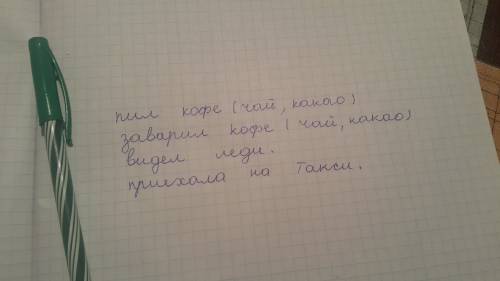 пил кофе (чай, какао)
заварил кофе (чай, какао)
видел леди.
приехала на такси.